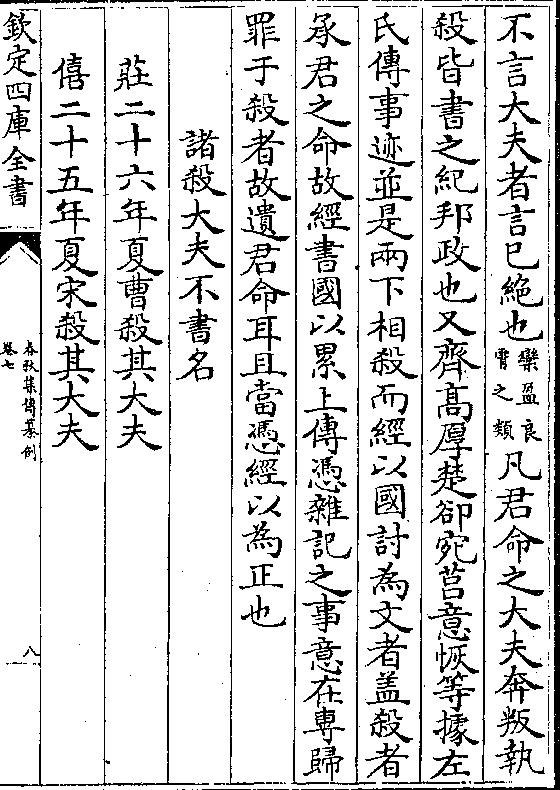 不言大夫者言巳絶也欒盈良霄之類凡君命之大夫奔叛執
殺皆書之紀邦政也又齊髙厚楚郤宛莒意恢等據左
氏傳事迹並是兩下相殺而經以國討為文者盖殺者
承君之命故經書國以累上傳憑雜記之事意在專歸
罪于殺者故遺君命耳且當憑經以為正也
諸殺大夫不書名
莊二十六年夏曹殺其大夫
僖二十五年夏宋殺其大夫
欽定四庫全書
春秋集傳纂例
卷七
八